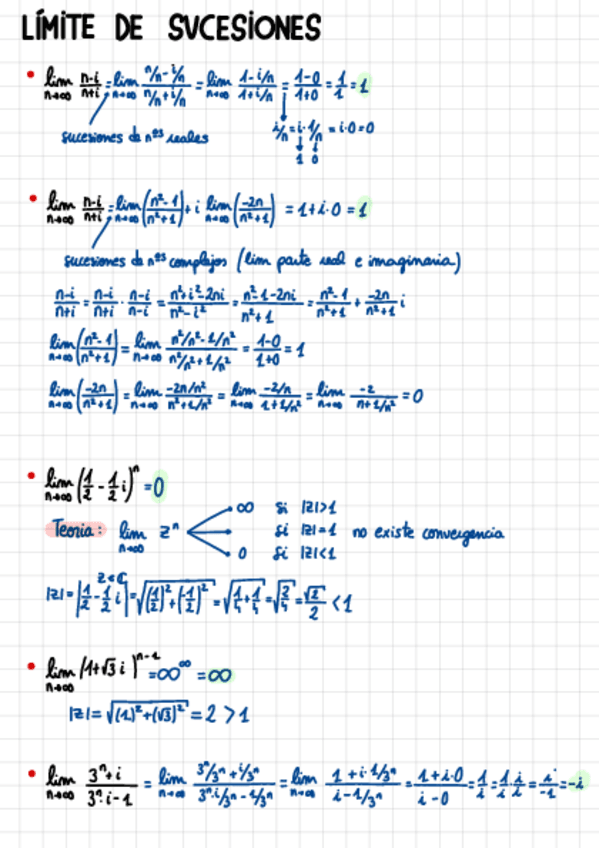 LÍMITE DE SUCESIONES
• lim n→∞ (n-i)/(n+i) = lim n→∞ (n/n - i/n)/(n/n + i/n) = lim n→∞ (1-i/n)/(1+i/n) = (1-0)/(1+0) = 1/1 = 1
sucesiones de nºs reales
i/n = i·1/n = i·0=0
1 0
• lim n→∞ (n-i)/(n+i) = lim n→∞ ((n²-1)/(n²+1)) + i lim n→∞ ((-2n)/(n²+1)) = 1+i·0 = 1
sucesiones de nºs complejos (lim parte real e imaginaria)
(n-i)/(n+i) = (n-i)/(n+i) · (n-i)/(n-i) = (n²+i²-2ni)/(n²-i²) = (n²-1-2ni)/(n²+1) = (n²-1)/(n²+1) + (-2n)/(n²+1) i
lim n→∞ ((n²-1)/(n²+1)) = lim n→∞ (n²/n² - 1/n²)/(n²/n² + 1/n²) = (1-0)/(1+0) = 1
lim n→∞ ((-2n)/(n²+1)) = lim n→∞ (-2n/n²)/(n²+1/n²) = lim n→∞ (-2/n)/(1+1/n²) = lim n→∞ (-2)/(n+1/n²) = 0
• lim n→∞ (1/2 - 1/2 i)ⁿ = 0
Teoria: lim n→∞ zⁿ
∞ si |z|>1
si |z|=1 no existe convergencia
0 si |z|<1
z∈ℂ
|z| = |1/2 - 1/2 i| = √((1/2)²+(-1/2)²) = √(1/4+1/4) = √(2/4) = √2/2 < 1
• lim n→∞ (1+√3 i)ⁿ⁻¹ = ∞^∞ = ∞
|z| = √((1)²+(√3)²) = 2 > 1
• lim n→∞ (3ⁿ+i)/(3ⁿ·i-1) = lim n→∞ (3ⁿ/3ⁿ + i/3ⁿ)/(3ⁿ·i/3ⁿ - 1/3ⁿ) = lim n→∞ (1+i·1/3ⁿ)/(i-1/3ⁿ) = (1+i·0)/(i-0) = 1/i = 1/i·i/i = i/-1 = -i